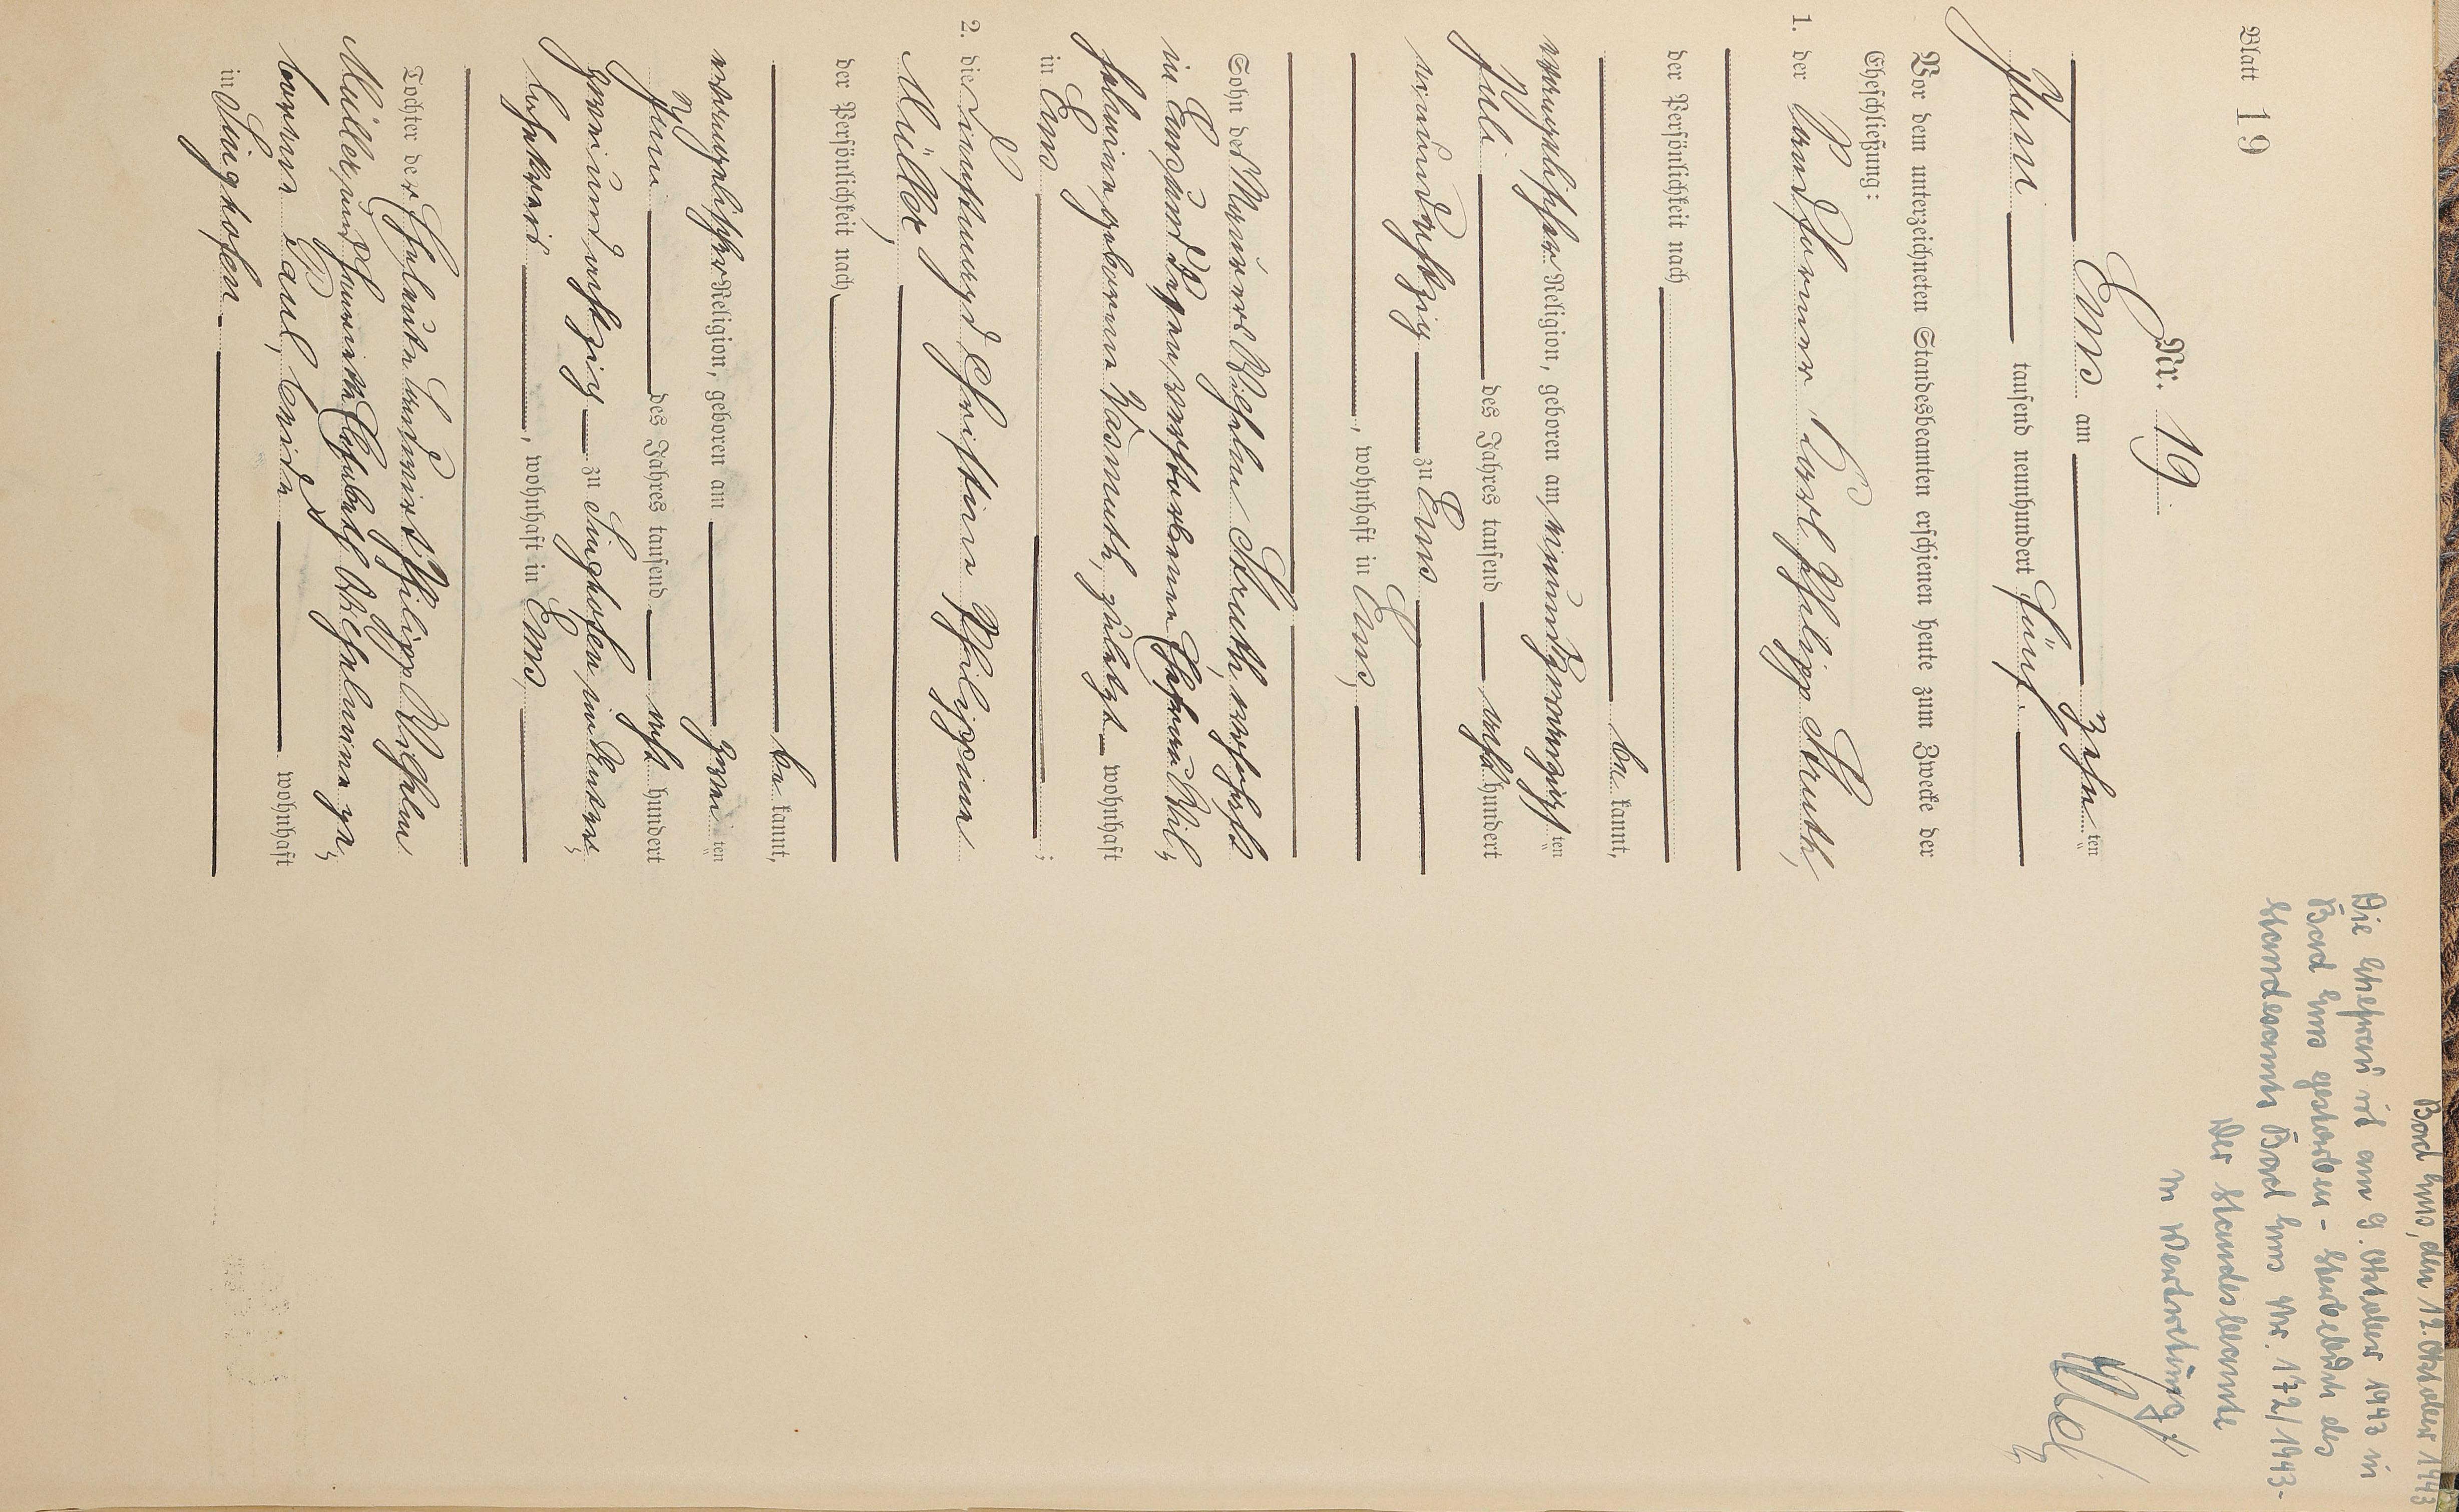 Blatt 19
Nr. 19.
Ems am zehn ten
Juni tausend neunhundert fünf.
Vor dem unterzeichneten Standesbeamten erschienen heute zum Zwecke der
Eheschließung:
1. der Sandformer Carl Philipp Struth,
der Persönlichkeit nach
be kannt,
evangelischer Religion, geboren am neunundzwanzigsten
Juli des Jahres tausend acht hundert
neunundachtzig zu Ems
, wohnhaft in Ems,
Sohn des Maurers Wilhelm Struth, wohnhaft
in Ems und dessen verstorbenen Ehefrau Wil-
helmine geborene Wasmuth, zuletzt wohnhaft
in Ems ;
2. die Dienstmagd Christine Philippine
Müller,
der Persönlichkeit nach
be kannt,
evangelischer Religion, geboren am zwei ten
Juni des Jahres tausend acht hundert
zwei und achtzig zu Singhofen im Unter-
lahnkreis , wohnhaft in Ems,
Tochter der Eheleute Landwirt Philipp Wilhelm
Müller und Henriette Elisabeth Wilhelmine ge-
borene Paul, beide wohnhaft
in Singhofen
Bad Ems, den 12. Oktober 1943
Die Ehefrau ist am 9. Oktober 1943 in
Bad Ems gestorben - Sterbebuch des
Standesamts Bad Ems Nr. 172/1943-
Der Standesbeamte
In Vertretung